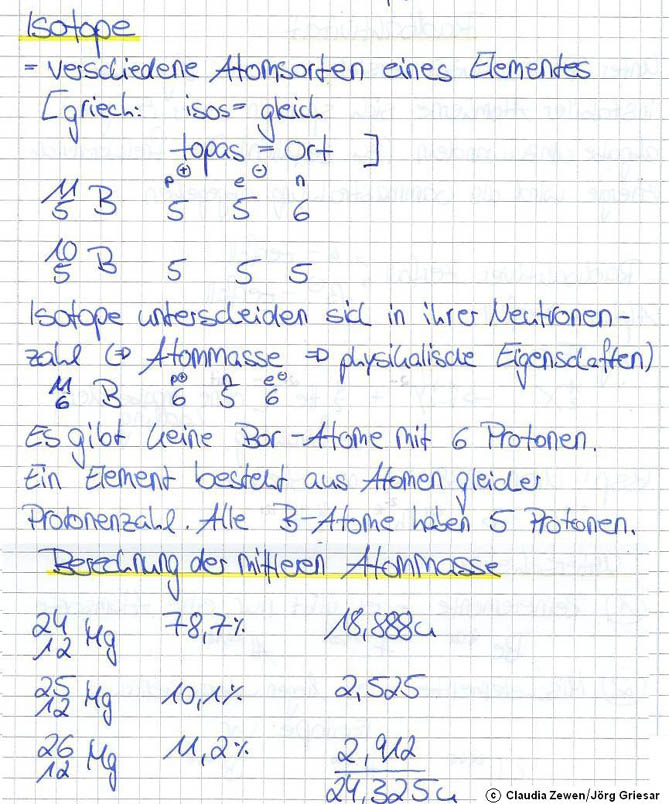 Isotope
= verschiedene Atomsorten eines Elementes
[griech: isos = gleich
topas = Ort ]
p⊕ e⊖ n
11 5 B 5 5 6
10 5 B 5 5 5
Isotope unterscheiden sich in ihrer Neutronen-
zahl (⇒ Atommasse ⇒ physikalische Eigenschaften)
p⊕ n e⊖
11 6 B 6 5 6
Es gibt keine Bor-Atome mit 6 Protonen.
Ein Element besteht aus Atomen gleicher
Protonenzahl. Alle B-Atome haben 5 Protonen.
Berechnung der mittleren Atommasse
24 12 Mg 78,7% 18,888u
25 12 Mg 10,1% 2,525
26 12 Mg 11,2% 2,912
24,325u
© Claudia Zewen/Jörg Griesar